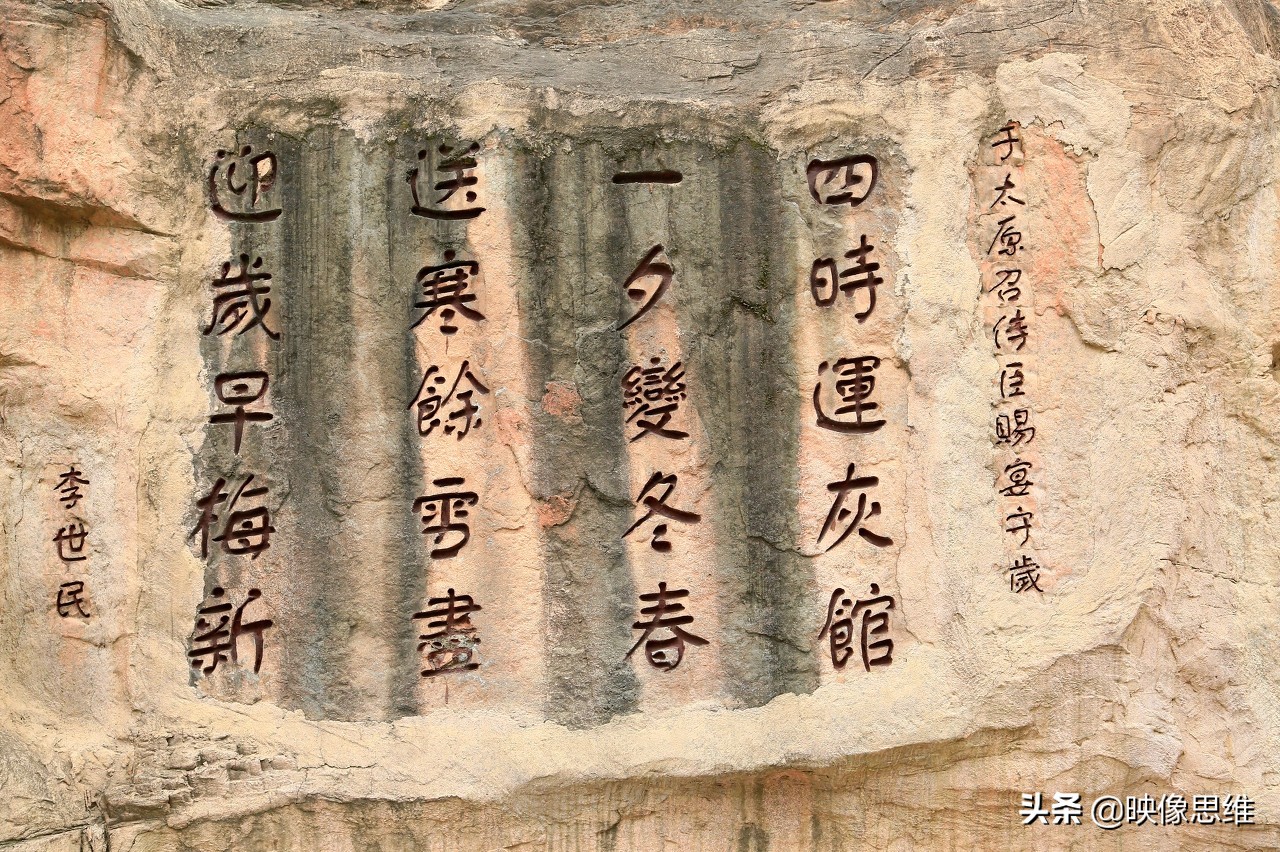 于太原召侍臣賜宴守歲
四時運灰館
一夕變冬春
送寒餘雪盡
迎歲早梅新
李世民
头条 @映像思维